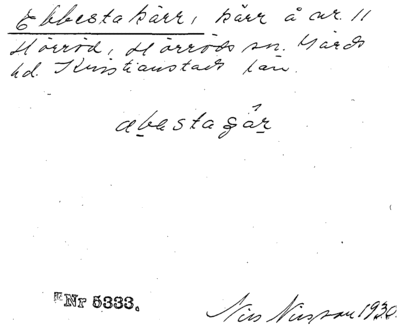 Ebbesta kärr, kärr å nr. 11
Hörröd, Hörröds sn. Gärds
hd. Kristianstads län.
abestagår
Nr 5333.
Nils Nilsson 1930.